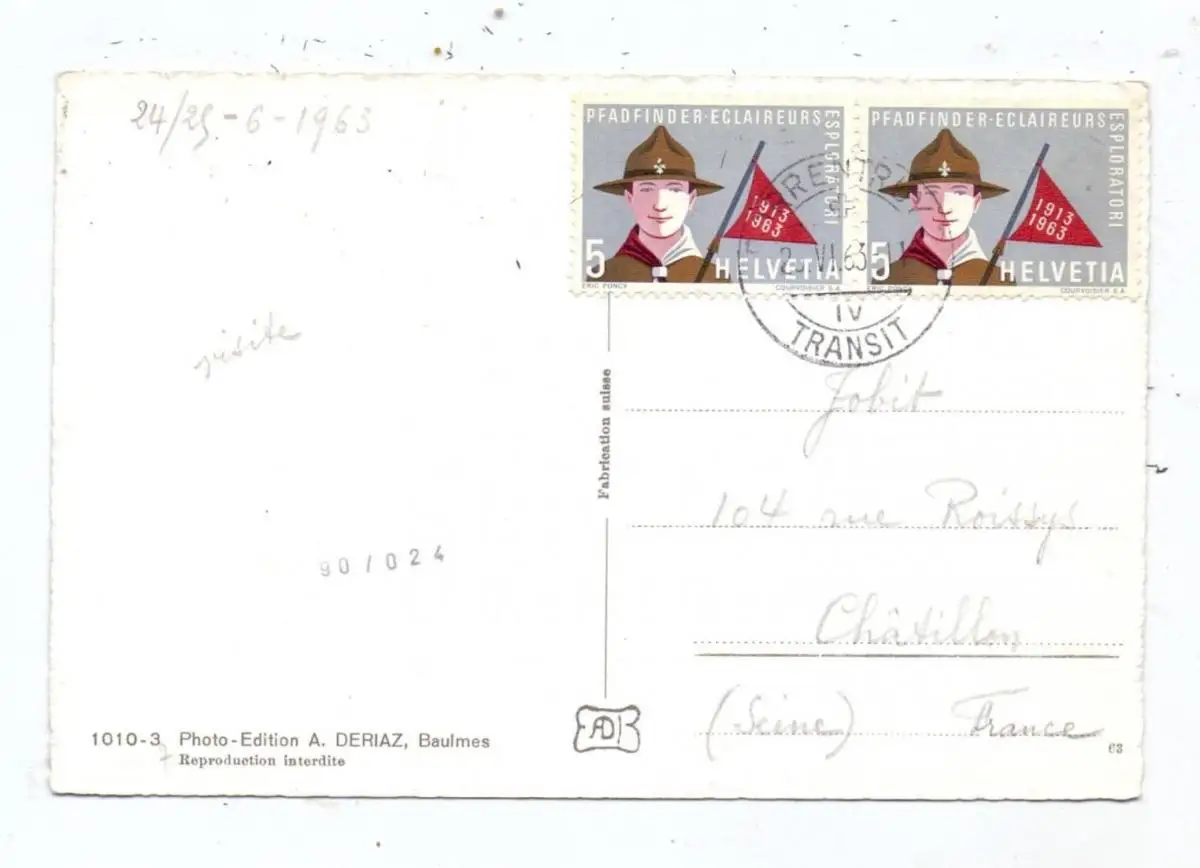 24/25-6-1963
PFADFINDER·ECLAIREURS
ESPLORATORI
1913
1963
5 HELVETIA
ERIC PONCY COURVOISIER S.A.
PFADFINDER·ECLAIREURS
ESPLORATORI
1913
1963
5 HELVETIA
ERIC PONCY COURVOISIER S.A.
VI.63
IV
TRANSIT
visite
Fabrication suisse
Jobit
104 rue Roissys
Châtillon
(Seine) France
901024
1010-3 Photo-Edition A. DERIAZ, Baulmes
7 Reproduction interdite
AD
63